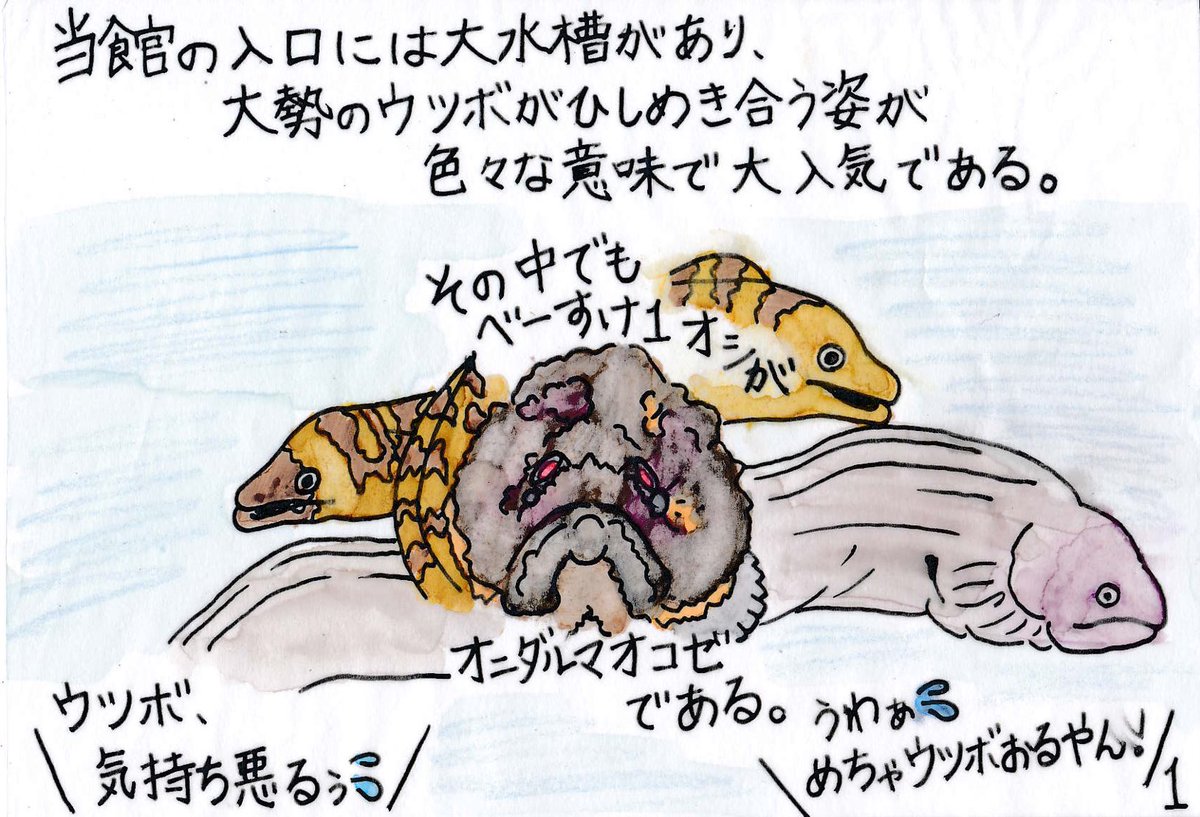 当館の入口には大水槽があり、
大勢のウツボがひしめき合う姿が
色々な意味で大人気である。
その中でも
べーすけ1オシが
オニダルマオコゼ
である。
ウツボ、
気持ち悪るぅ💦
うわぁ💦
めちゃウツボおるやん!
1